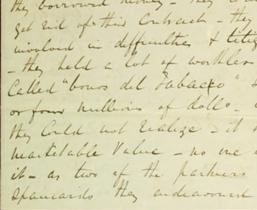 they borrowed money - they
get rid of this Contract - they
involved in difficulties &
- they held a lot of worthless
Called "bonos del Tabacco"
or four millions of dolls.
they Could not realize - it
marketable Value - no one
it - as two of the partners
Spaniards they endeavoured